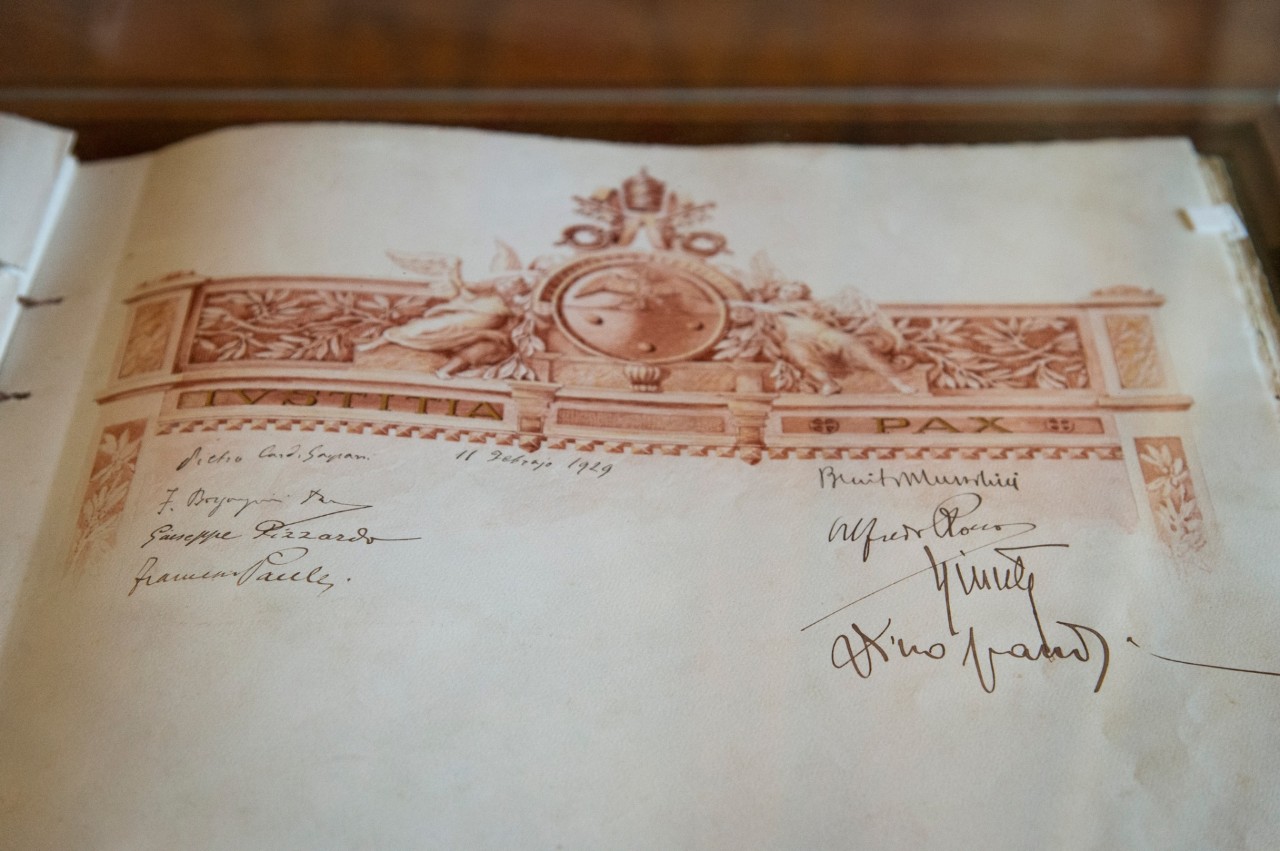 IVSTITIA
PAX
Pietro Card. Gasparri
11 Febrajo 1929
F. Borgongini Duca
Giuseppe Pizzardo
Francesco Pacelli.
Benito Mussolini
Alfredo Rocco
Giunta
Dino Grandi